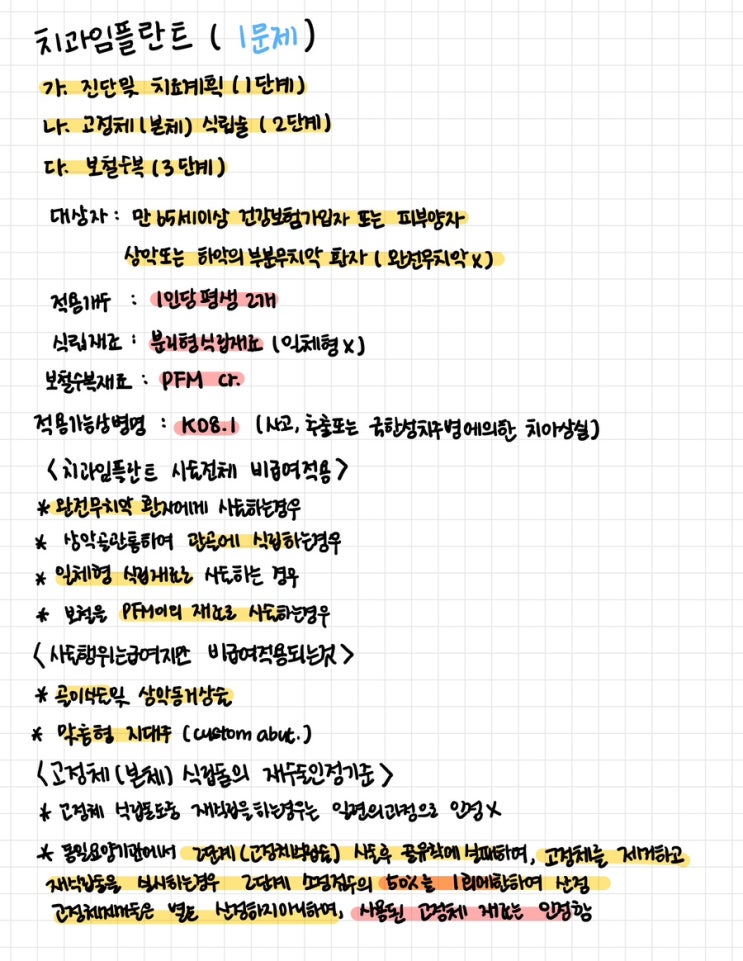 치과임플란트 ( 1문제 )
가. 진단및 치료계획 (1단계)
나. 고정체(본체) 식립술 (2단계)
다. 보철수복 (3단계)
대상자 : 만 65세이상 건강보험가입자 또는 피부양자
상악또는 하악의 부분무치악 환자 ( 완전무치악 X )
적용개수 : 1인당 평생 2개
식립재료 : 분리형식립재료 (일체형 X)
보철수복재료 : PFM Cr.
적용가능상병명 : K08.1 (사고, 추출또는 국한성치주병에의한 치아상실)
<치과임플란트 시술전체 비급여적용>
* 완전무치악 환자에게 시술하는경우
* 상악골관통하여 관골에 식립하는경우
* 일체형 식립재료로 시술하는 경우
* 보철을 PFM이외 재료로 시술하는경우
<시술행위는급여지만 비급여적용되는것>
* 골이식술및 상악동거상술
* 맞춤형 지대주 (custom abut.)
<고정체(본체) 식립술의 재수술인정기준>
* 고정체 식립술도중 재식립을하는경우는 일련의과정으로 인정X
* 동일요양기관에서 2단계(고정체식립술) 시술후 골유착에실패하여, 고정체를 제거하고
재식립술을 실시하는경우 2단계 소정점수의 50%을 1회에한하여 산정
고정체제거술은 별도 산정하지아니하며, 사용된 고정체 재료는 인정함